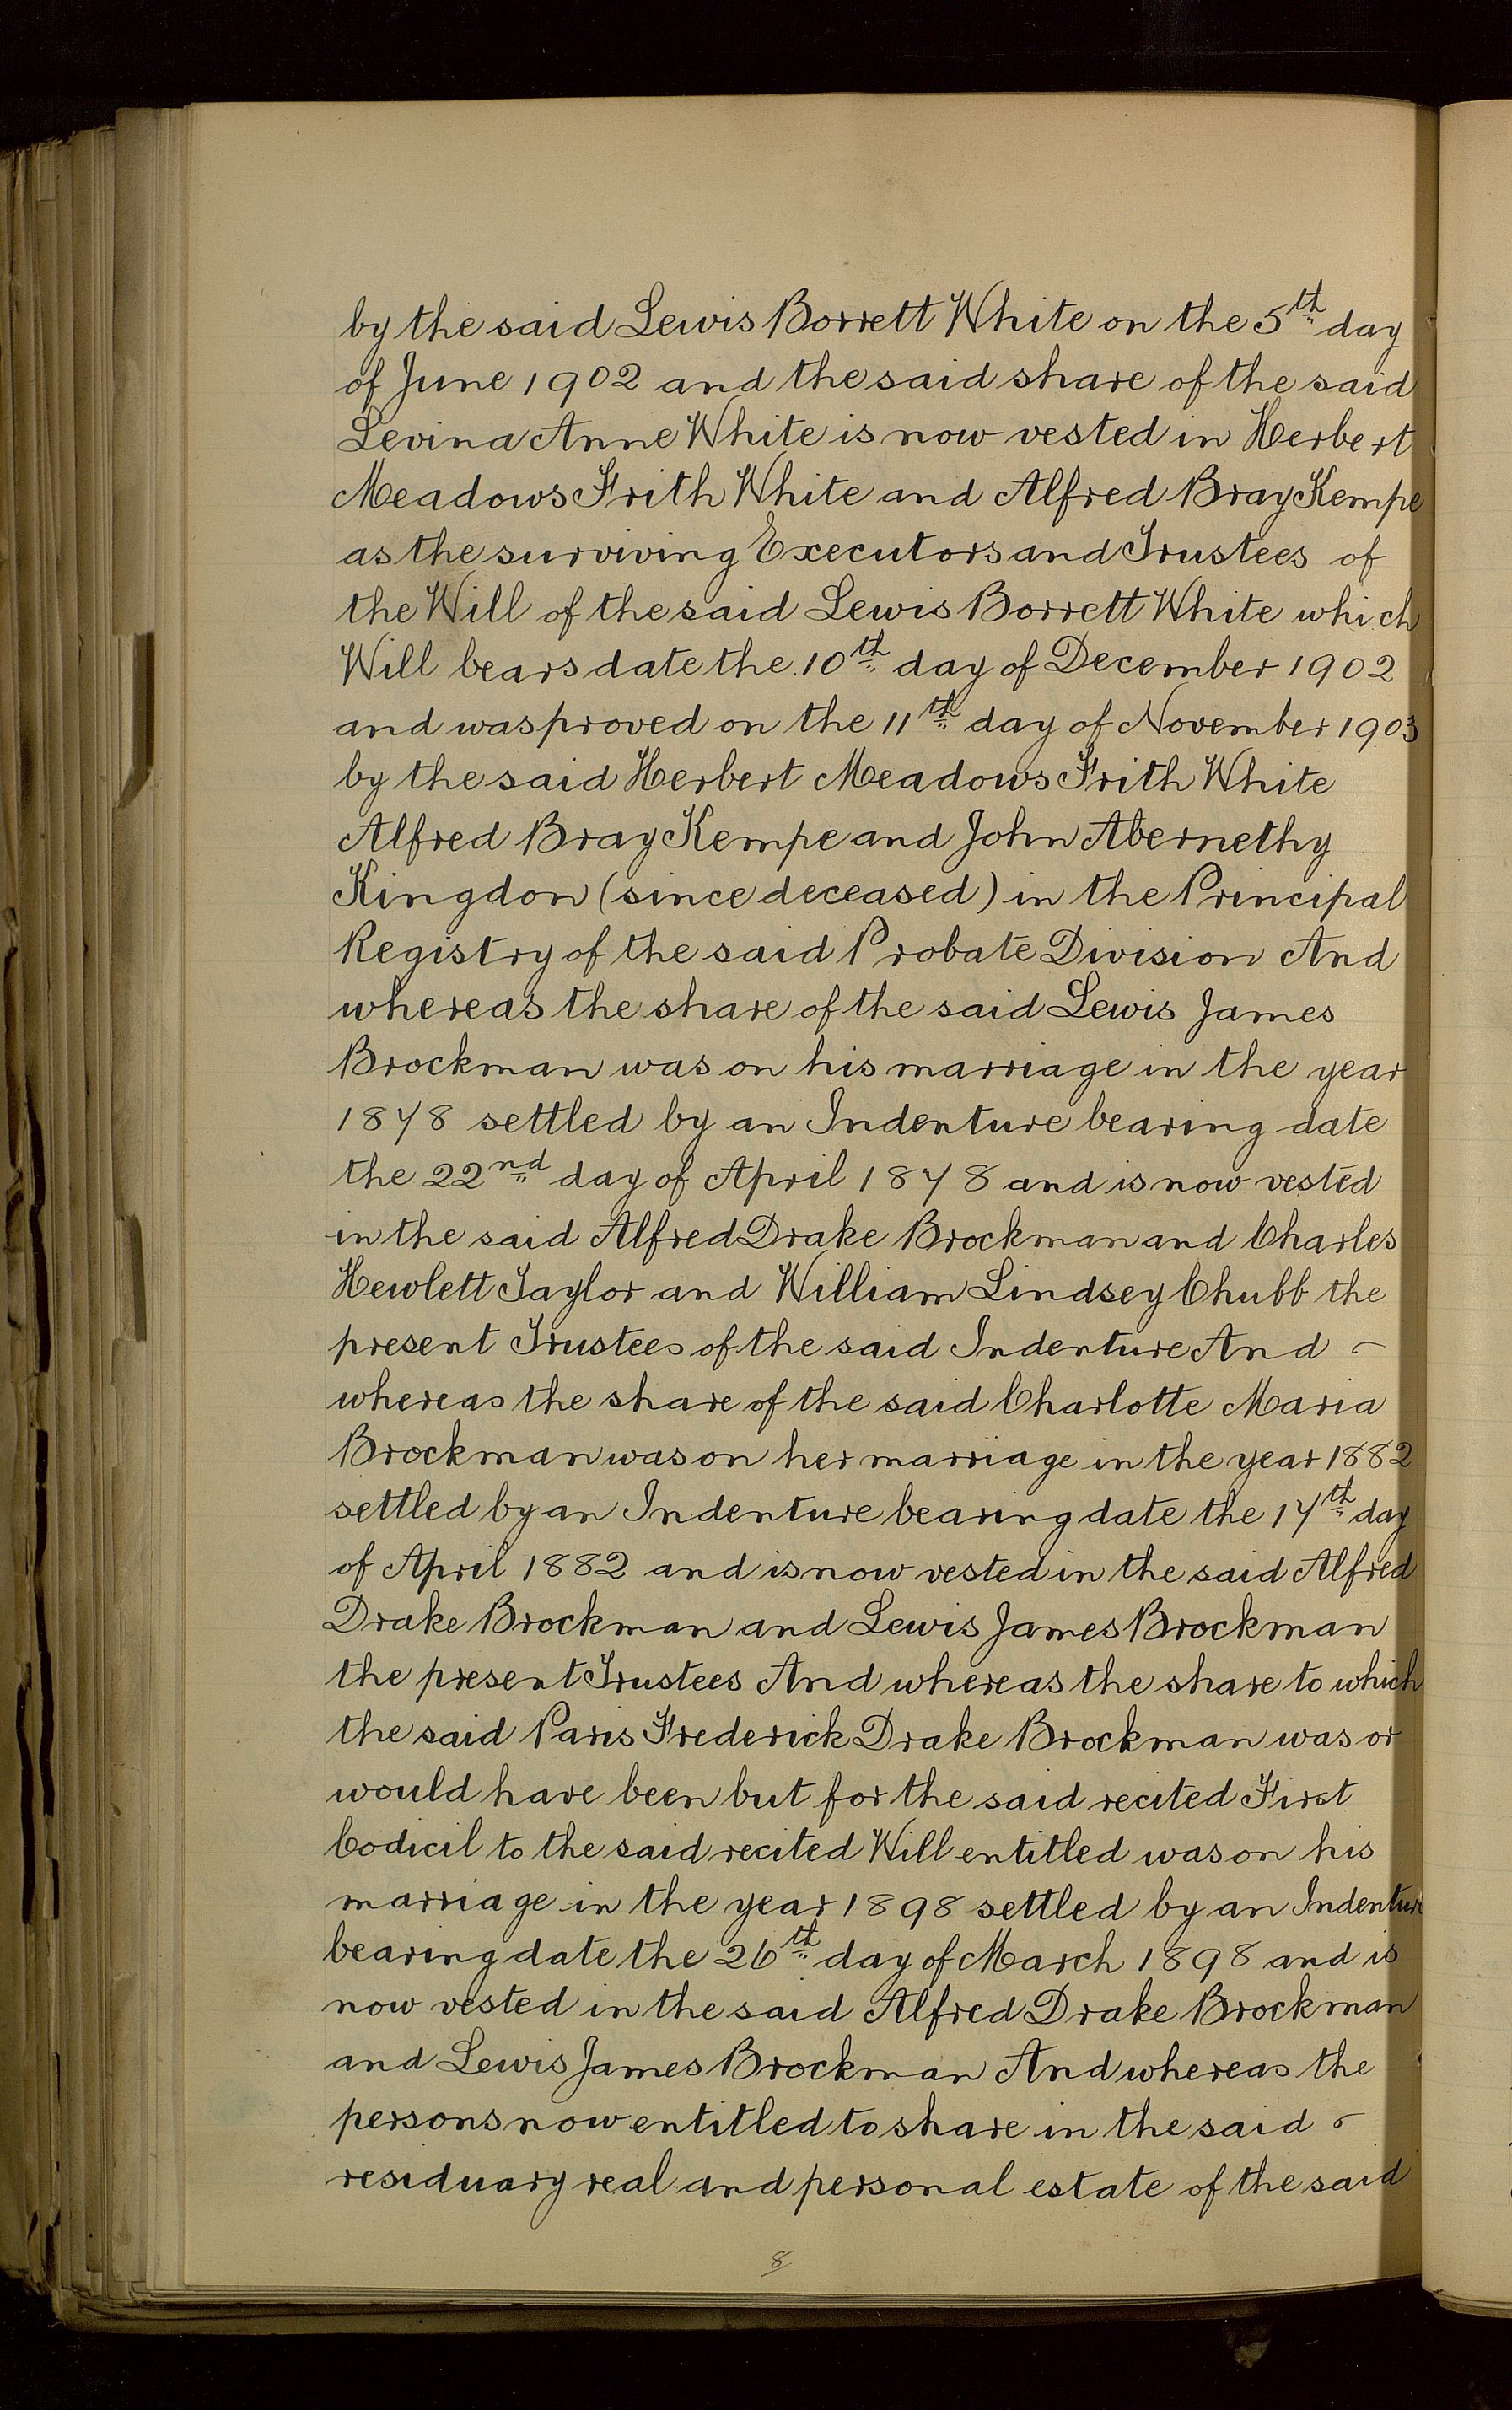 by the said Lewis Borrett White on the 5th day
of June 1902 and the said share of the said
Levina Anne White is now vested in Herbert
Meadows Frith White and Alfred Bray Kempe
as the surviving Executors and Trustees of
the Will of the said Lewis Borrett White which
Will bears date the 10th day of December 1902
and was proved on the 11th day of November 1903
by the said Herbert Meadows Frith White
Alfred Bray Kempe and John Abernethy
Kingdon (since deceased) in the Principal
Registry of the said Probate Division And
whereas the share of the said Lewis James
Brockman was on his marriage in the year
1878 settled by an Indenture bearing date
the 22nd day of April 1878 and is now vested
in the said Alfred Drake Brockman and Charles
Hewlett Taylor and William Lindsey Chubb the
present Trustees of the said Indenture And –
whereas the share of the said Charlotte Maria
Brockman was on her marriage in the year 1882
settled by an Indenture bearing date the 17th day
of April 1882 and is now vested in the said Alfred
Drake Brockman and Lewis James Brockman
the present Trustees And whereas the share to which
the said Paris Frederick Drake Brockman was or
would have been but for the said recited First
Codicil to the said recited Will entitled was on his
marriage in the year 1898 settled by an Indenture
bearing date the 26th day of March 1898 and is
now vested in the said Alfred Drake Brockman
and Lewis James Brockman And whereas the
persons now entitled to share in the said –
residuary real and personal estate of the said
8